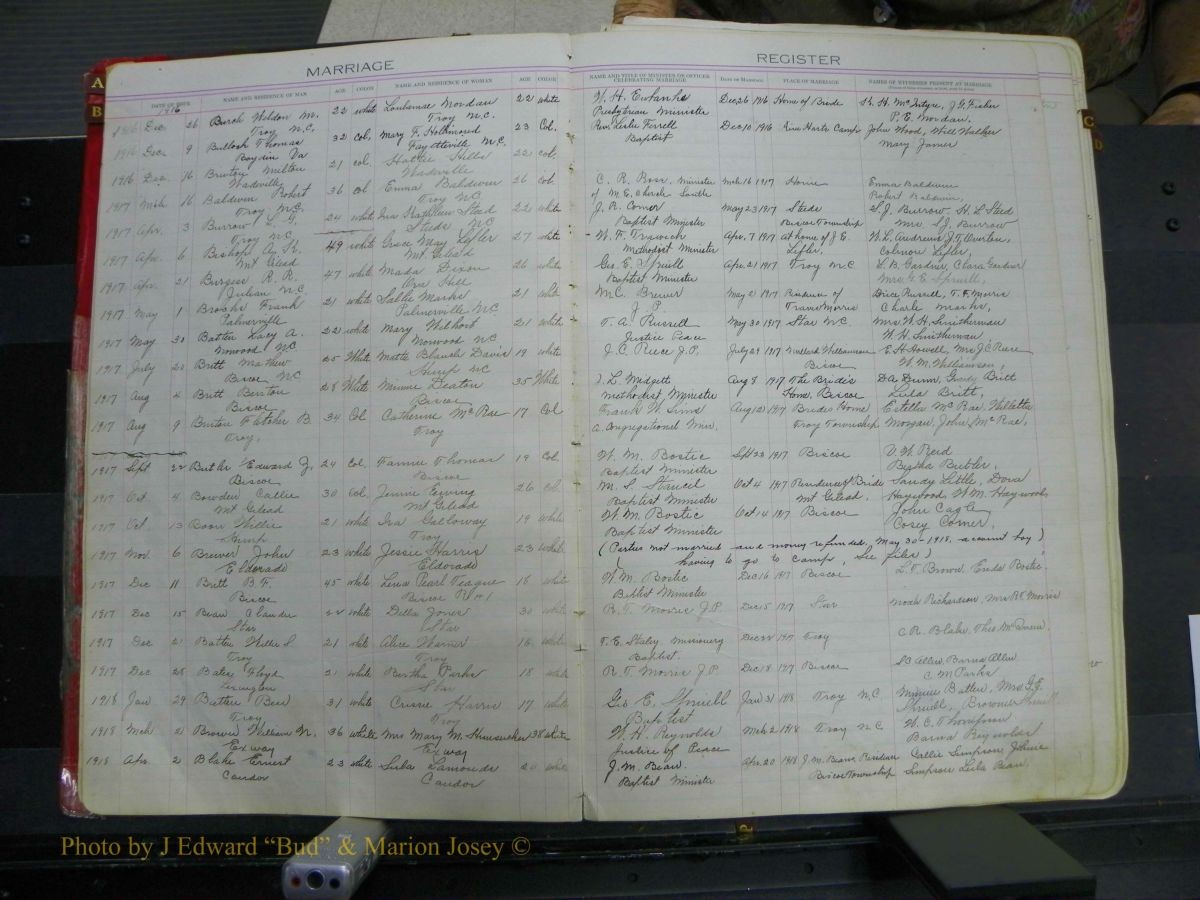 MARRIAGE
REGISTER
DATE OF ISSUE NAME AND RESIDENCE OF MAN AGE COLOR NAME AND RESIDENCE OF WOMAN AGE COLOR
NAME AND TITLE OF MINISTER OR OFFICER CELEBRATING MARRIAGE DATE OF MARRIAGE PLACE OF MARRIAGE NAMES OF WITNESSES PRESENT AT MARRIAGE
1916
1916 Dec 26 Burch Weldon M. 22 white Mordan 22 white
Troy N.C. Troy N.C.
1916 Dec 9 Bullock Thomas 32 Col. Mary F. 23 Col.
Boyden Va Fayetteville N.C.
1916 Dec 16 Milton 21 Col. Hattie 22 Col.
Wadeville Wadeville
1917 Mch 16 Baldwin Robert 36 Col Emma Baldwin 26 Col
Troy N.C. Troy NC
1917 Apr. 3 Burrow 24 white Ina Steed 22 white
Troy N.C. Steeds N.C
1917 Apr. 6 49 white Grace May Lefler 27 white
Mt Gilead Mt Gilead
1917 Apr. 21 Burgess R. R. 47 white Dixon 26 white
Julian N.C Hill
1917 May 1 Brooks Frank 21 white Sallie Marks 21 white
Palmerville Palmerville N.C
1917 May 30 Batten Lacy A. 22 white Mary Wilhoit 21 white
Norwood N.C. Norwood N.C
1917 July 20 Britt Mathew 25 White Mattie Blanch Davis 19 white
Biscoe N.C Hemp N.C
1917 Aug 4 Britt Benton 28 White Minnie Deaton 35 White
Biscoe Biscoe
1917 Aug 9 B. 34 Col Catherine McRae 17 Col
Troy, Troy
1917 Sept 22 Butler Edward J. 24 Col. Fannie Thomas 19 Col.
Biscoe Biscoe
1917 Oct. 4 Bowden Callie 30 Col. Jennie Ewing 26 Col
Mt Gilead Mt Gilead
1917 Oct. 13 Boon Willie 21 white Iva Galloway 19 white
Hemp Troy
1917 Nov. 6 Brewer John 23 white Jessie Harris 23 white
Eldorado Eldorado
1917 Dec 11 Britt B. F. 45 white Lena Pearl Teague 16 white
Biscoe Biscoe R#1
1917 Dec 15 Bean Claude 22 white Della Jones 30 white
Star Star
1917 Dec 21 Batten Willie S 21 wht Alice Warner 16 white
Troy Troy
1917 Dec 28 Bates Floyd 21 white Bertha Parks 18 white
Lexington Star
1918 Jan 29 Batten Ben 31 white Harris 17 white
Troy Troy
1918 Mch 2 Brower William W. 36 white Mrs Mary M. 38 white
Exway Exway
1918 Apr. 2 Blake Ernest 23 white Lula 20 white
Candor Candor
W. H. Eubanks Dec 26 1916 Home of Bride McIntyre, J.G. Fisher
Presbyterian Minister P.E. Mordan.
Rev. Ferrell Dec 10 1916 Camp John Wood, Will Walker
Baptist Mary
C. R. Ross, Minister Mch 16 1917 Home Emma Baldwin
of M.E. Church South Robert Baldwin,
J. R. Comer May 23 1917 Steeds S.J. Burrow, H. L. Steed
Baptist Minister Biscoe Township Mrs S.J. Burrow
W. F. Apr. 7 1917 at home of J E. W. L. Andrews, J.T. Overton,
Methodist Minister Lefler, Lefler,
Geo. E. Spruill Apr. 21 1917 Troy N.C L. B. Gardner, Clara Gardner
Baptist Minister Mrs G.E. Spruill,
M.C. Brewer May 2 1917 Residence of Brice Russell, T. F. Morris
J. P. Morris Charlie Marks,
T. A. Russell May 30 1917 Star N.C. Mrs W. H. Smitherman
Justice Peace W. H. Smitherman
J. C. Reece J.P. July 29 1917 Williamson E. H. Howell, Mrs J.C. Reece
Biscoe W. M. Williamson,
J. L. Midgett Aug 8 1917 The Brides D A Dunn, Grady Britt
Methodist Minister Home. Biscoe Lula Britt,
Frank W. Sims Aug 12 1917 Brides Home Estella McRae, Willetta
A. Congregational Min. Troy Township Morgan, John McRae,
W. M. Bostic Sept 23 1917 Biscoe V. W. Reid
Baptist Minister Bertha Butler,
M. S. Stancil Oct 4 1917 Residence of Bride Sandy Little, Dora
Baptist Minister Mt Gilead. Haywood, W.M. Haywood,
W. M. Bostic Oct 14 1917 Biscoe John Cagle
Baptist Minister Corey Comer,
(Parties not married and money refunded, May 30-1918. account boy)
having to go to camp, See files)
W. M. Bostic Dec 16 1917 Biscoe L. T. Brown, Enda Bostic,
Baptist Minister
R. T. Morris J.P. Dec 15 1917 Star Noah Richardson, Mrs R.T. Morris
T. E. Staley Missionary Dec 22 1917 Troy C. R. Blake, Theo McQueen,
Baptist.
R. T. Morris J.P. Dec 28 1917 Biscoe S D Allen, Allen
C M Parks
Geo E. Spruill Jan 31 1918 Troy N.C Minnie Batten, Mrs G.E.
Baptist Spruill,
W. H. Reynolds Mch 2 1918 Troy N.C. W. C. Thompson
Justice of Peace Reynolds
J. M. Bean. Apr. 20 1918 J. M. Beans Residence Callie Simpson,
Baptist Minister Biscoe Township Simpson Lula Bean.
Photo by J Edward “Bud” & Marion Josey ©
A
B
C
D